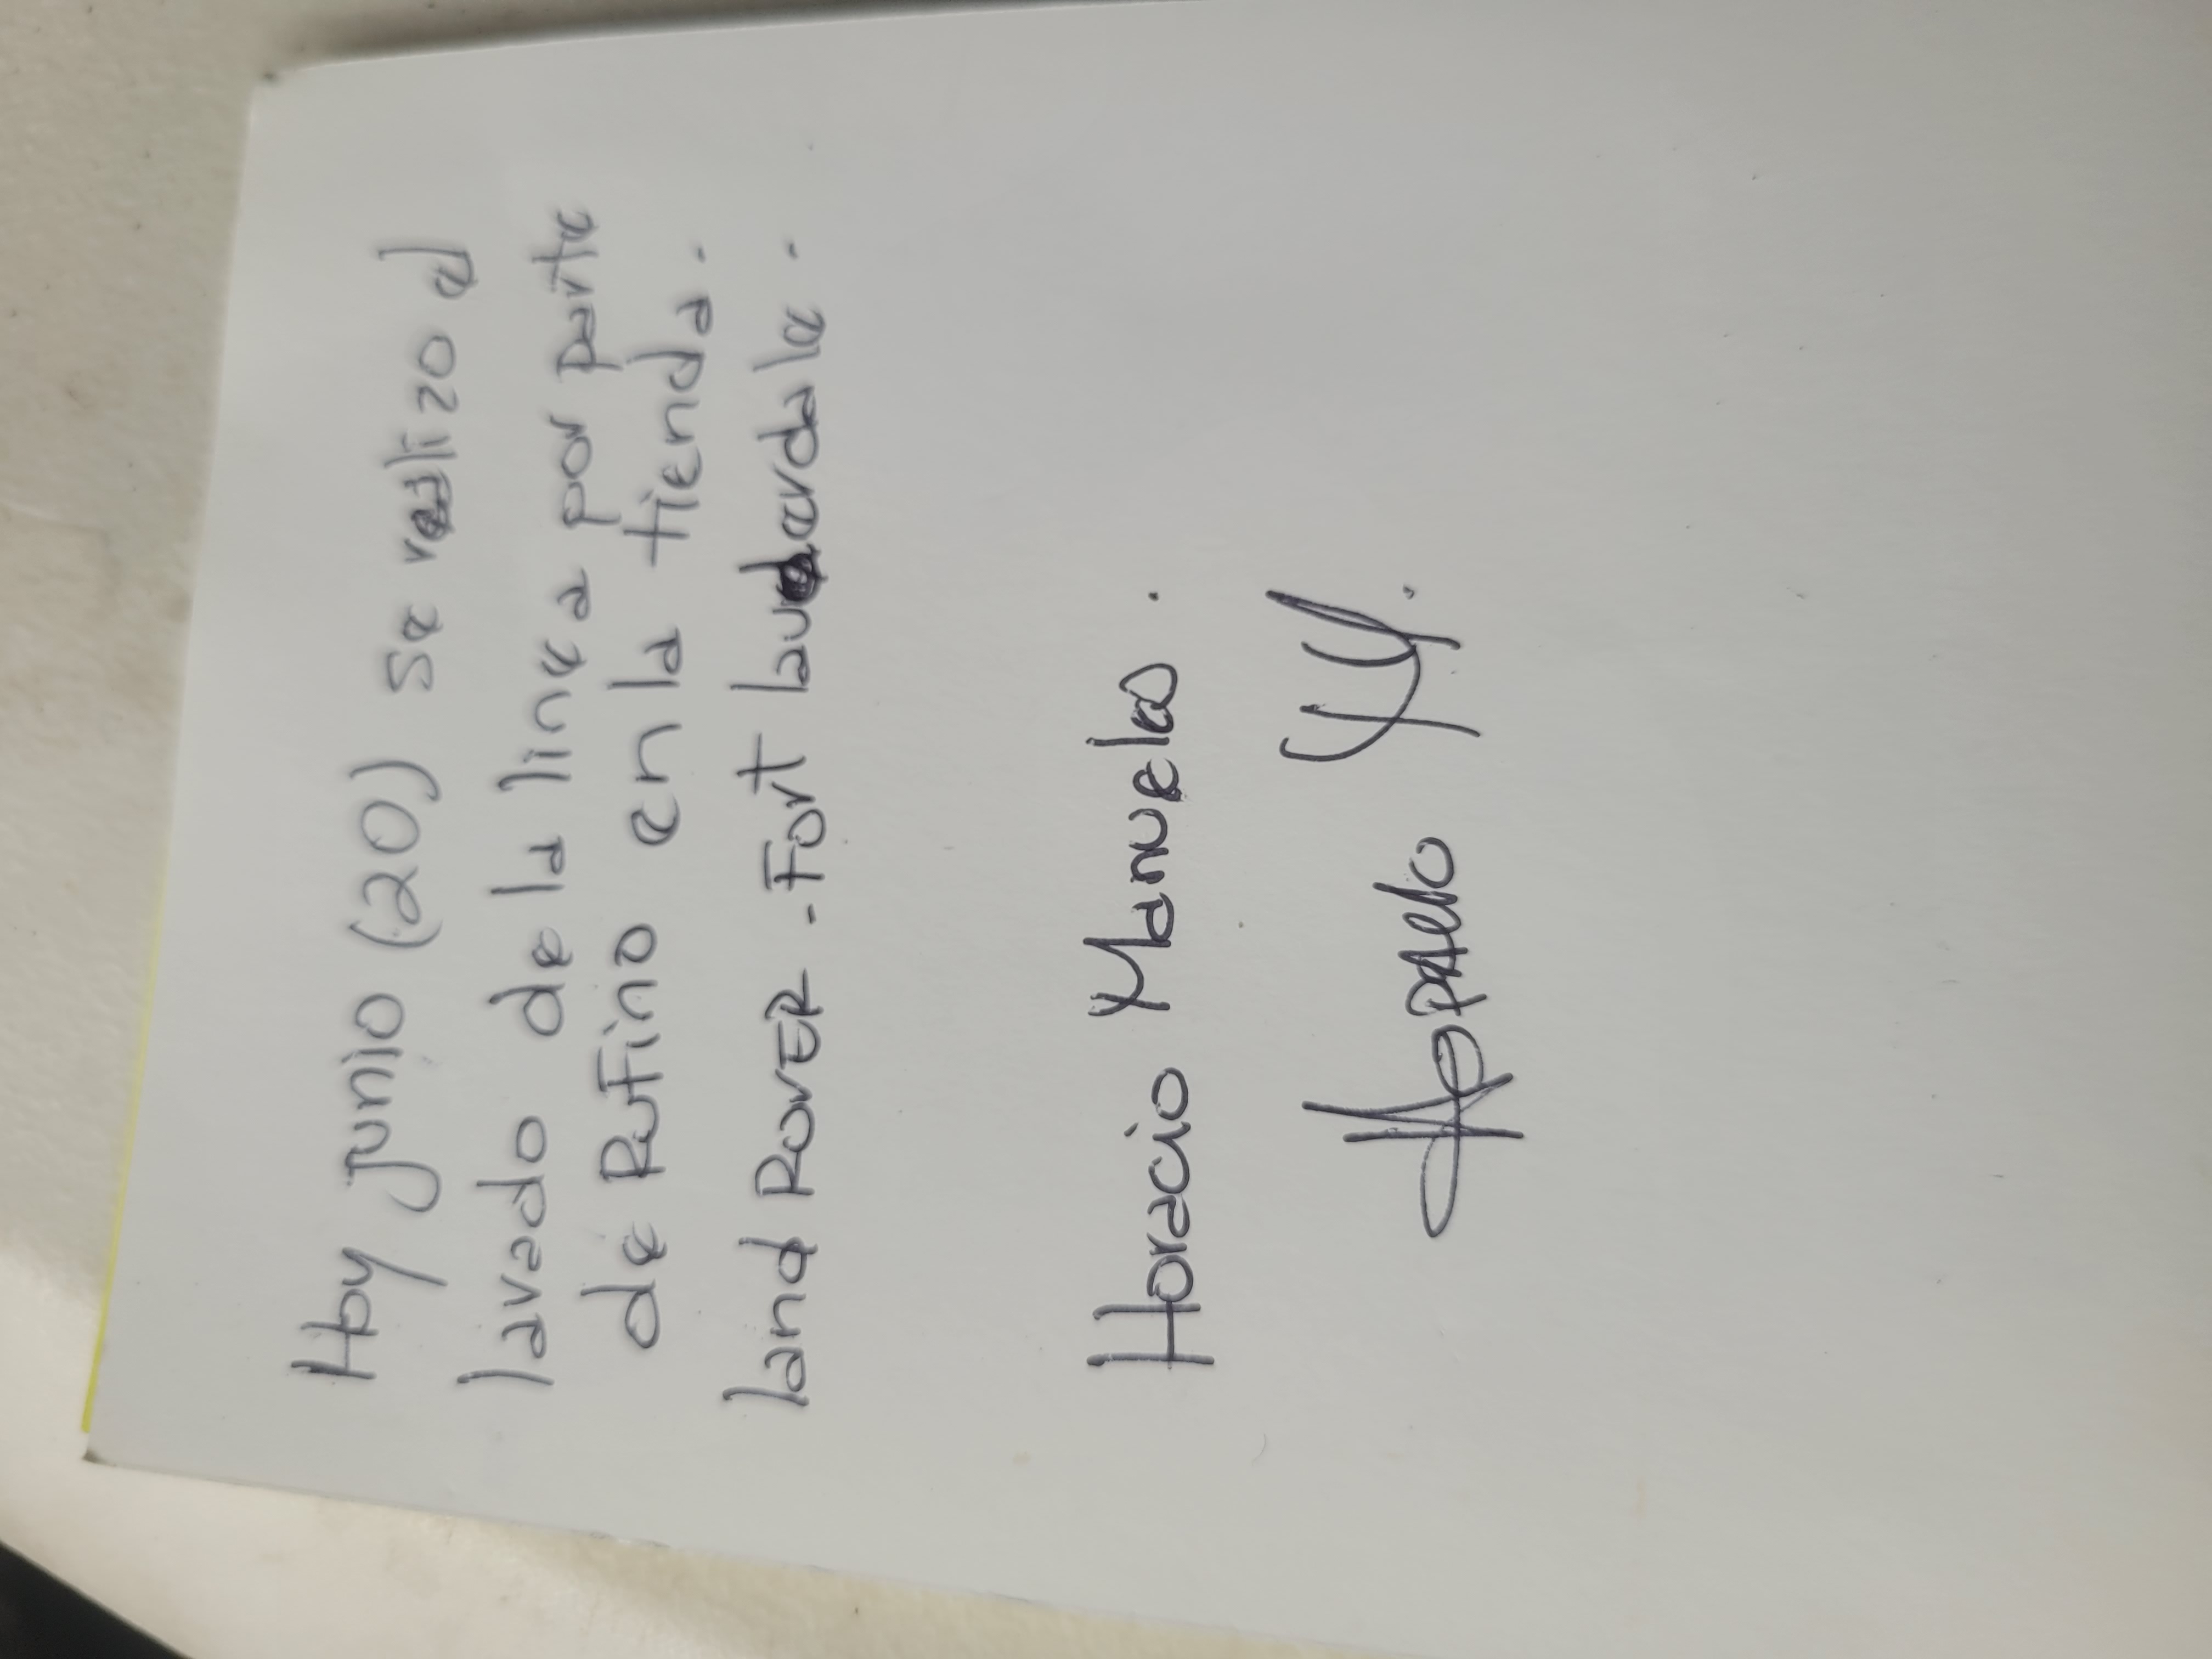 Hoy junio (20) se realizo el
lavado de la linea por parte
de Rufino en la tienda.
land ROVER - Fort lauderdale.
Horacio Manuelos.